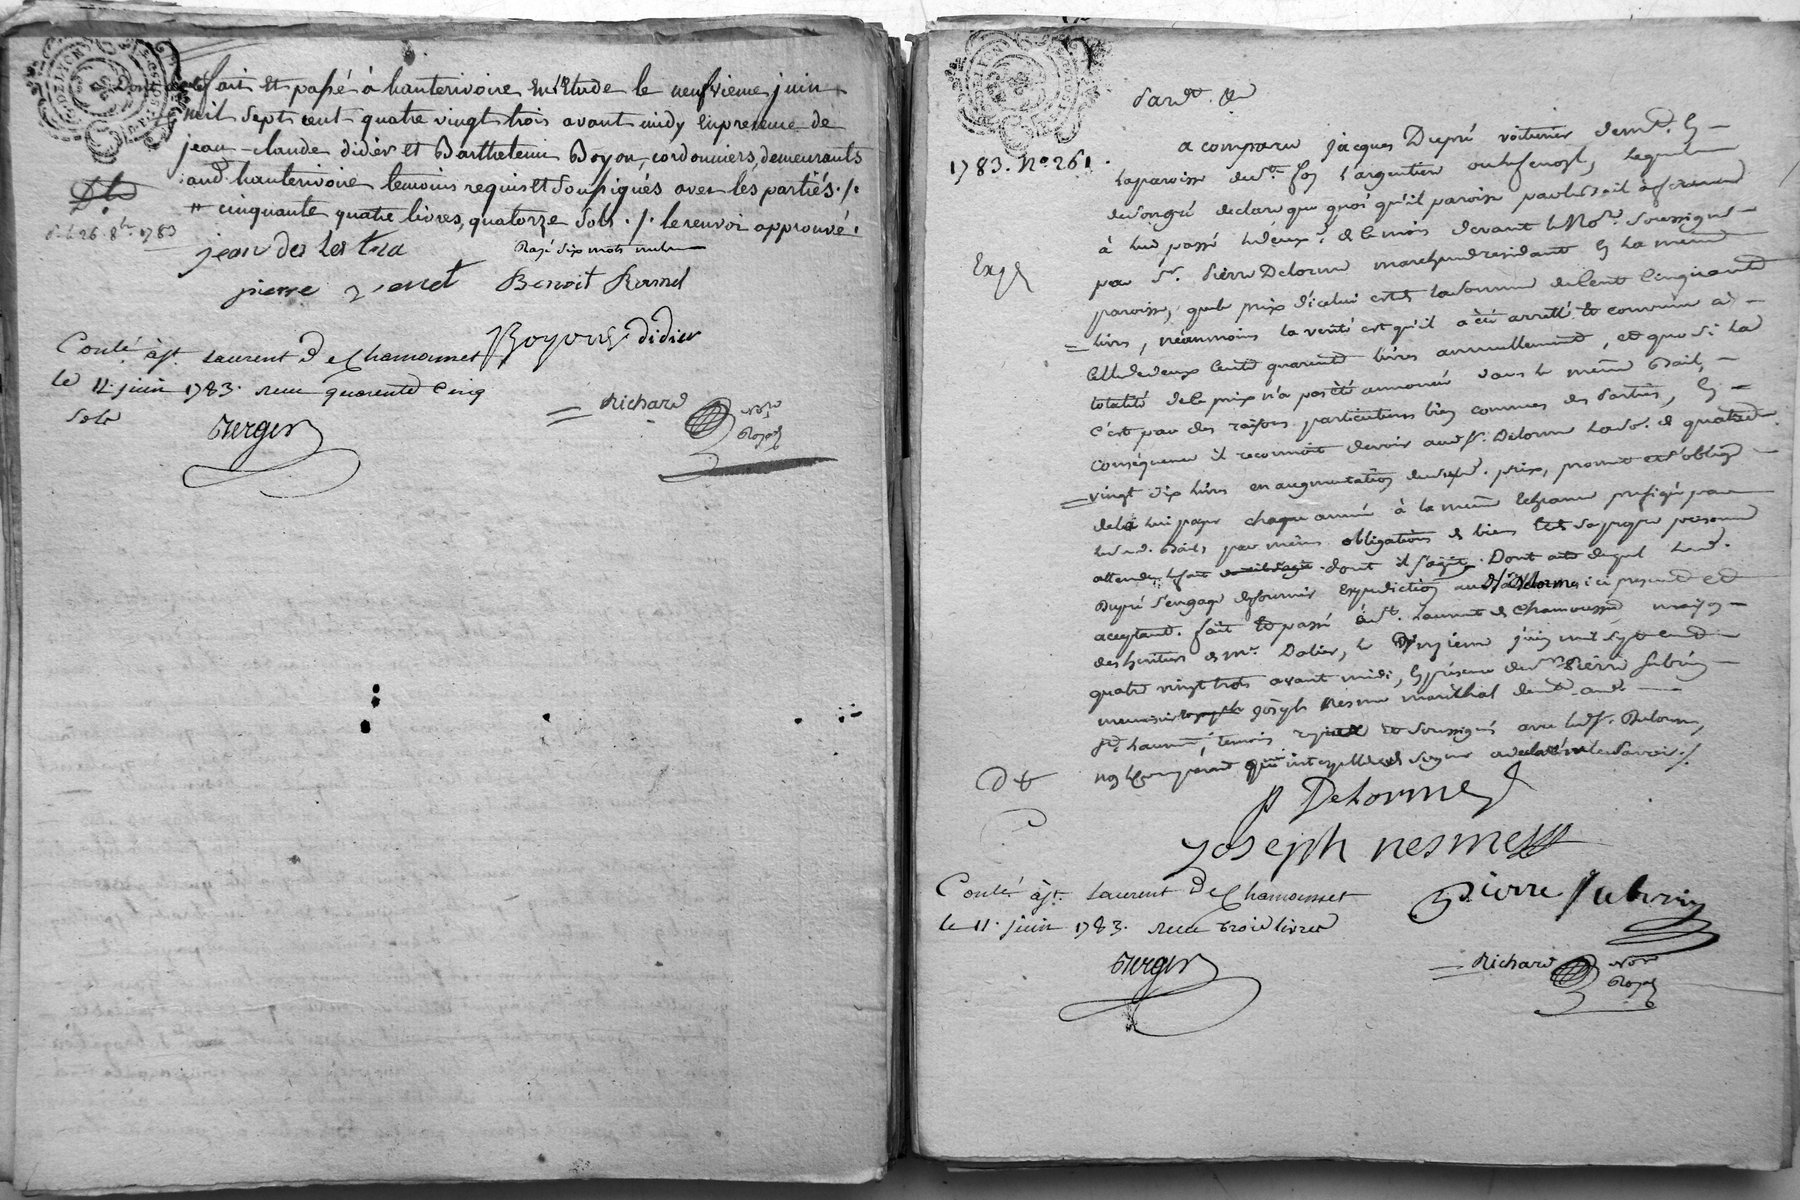 Dont acte fait et passé à hauterivoire en l'étude le neufvieme juin
mil sept cent quatre vingt trois avant midy en presence de
jean-claude didier et Barthelemi Boyon, cordonniers, demeurants
aud. hauterivoire temoins requis et soussignés avec les parties ./.
" cinquante quatre livres, quatorze sols ./. le renvoi approuvé :
Rayé six mots nuls
26 8bre 1783
pierre
Benoit
Boyon didier
Conlé à St. Laurent De Chamousset
le 11. juin 1783. reçu quarente cinq
sols
Verger
Richard
nore
Royal
GEN. DE LYON
1783. No. 261.
Pardt. &
a comparu jacques Dupré voiturier demt. En
la paroisse de St. foy l'argentiere lequel
de son gré declare que quoi qu'il paroisse par le bail à ferme
à lui passé le deux de ce mois devant le Nore. soussigné
par Sr. Pierre Delorme marchand residant En la même
paroisse, que le prix d'icelui est de la somme de cent cinquante
livres, néanmoins la verité est qu'il a été arretté et convenu à
celle de deux cents quarente livres annuellement, et que si la
totalité de ce prix n'a pas été annoncé dans le même bail,
c'est par des raisons particulieres bien connues des parties, En
conséquence il reconnoit devoir aud. Sr. Delorme la so. de quatre
vingt dix livres en augmentation dud. prix, promet et s'oblige
de la lui payer chaque année à la même
led. bail, par mêmes obligations de biens et de sa propre personne
attendu le fait dont il s'agit. Dont acte duquel led.
Dupré s'engage de fournir Expedition aud. Sr. Delorme, ici present et
acceptant. fait et passé à St. Laurent de Chamousset, maison
des heritiers de Mr. le onzieme juin mil sept cent
quatre vingt trois avant midi, En présence de Pierre Subrin
joseph Nesme maréchal demt. aud.
St. Laurent, temoins requis et soussignés avec led. Sr. Delorme,
non le comparant qui interpellé de signer a declaré ne le savoir ./.
p Delorme
Joseph nesme
Conlé à St. Laurent De Chamousset
Pierre Subrin
le 11. juin 1783. reçu trois livres
Verger
Richard
nore
Royal